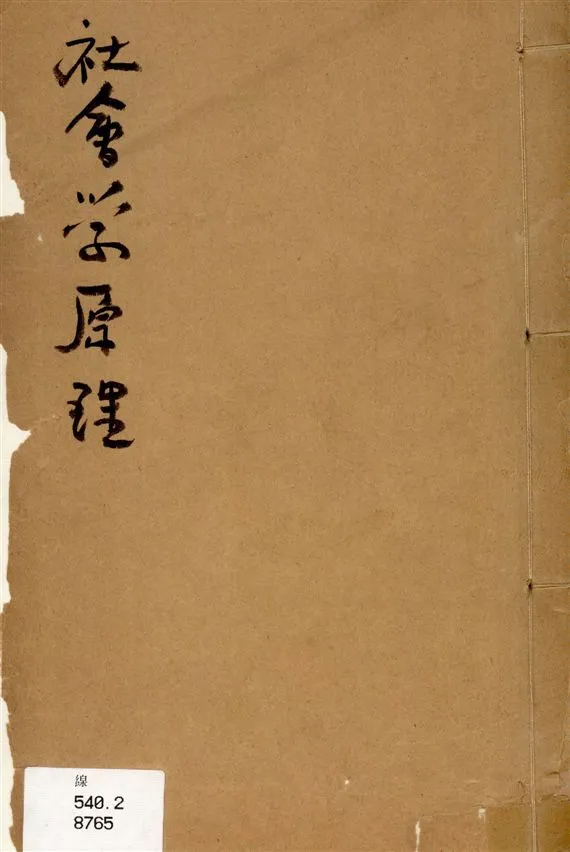 社會学原理
線
540.2
8765